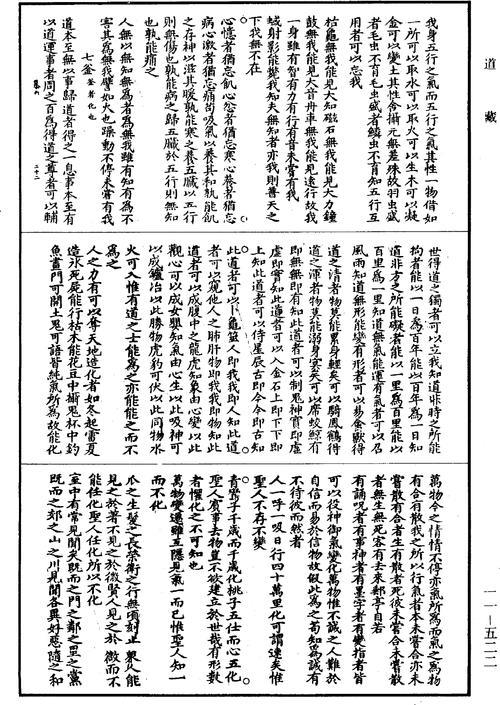 道藏
一一—五二二
我身五行之氣而五行之氣其性一物借如
一所可以取水可以取火可以生木可以凝
金可以變土其性含攝元無差殊故羽蟲盛
者毛蟲不育毛蟲盛者鱗蟲不育知五行互
用者可以忘我
枯龜無我能見大知磁石無我能見大力鐘
鼓無我能見大音舟車無我能見遠行故我
一身雖有智有力有行有音未嘗有我
蜮射影能斃我知夫無知者亦我則普天之
下我無不在
心憶者猶忘飢心忿者猶忘寒心養者猶忘
病心激者猶忘痛苟吸氣以養其和孰能飢
之存神以滋其暖孰能寒之養五臟以五行
則無傷也孰能病之歸五臟於五行則無知
也孰能痛之
人無以無知無為者為無我雖有知有為不
害其為無我譬如火也躁動不停未嘗有我
七釜釜者化也
道本至無以事歸道者得之一息事本至有
以道運事者周之百為得道之尊者可以輔
世得道之獨者可以立我知道非時之所能
拘者能以一日為百年能以百年為一日知
道非方之所能礙者能以一里為百里能以
百里為一里知道無氣能運有氣者可以召
風雨知道無形能變有形者可以易鳥獸得
道之清者物莫能累身輕矣可以騎鳳鶴得
道之渾者物莫能溺身冥矣可以席蛟鯨有
即無無即有知此道者可以制鬼神實即虛
虛即實知此道者可以入金石上即下下即
上知此道者可以侍星辰古即今今即古知
此道者可以卜龜筮人即我我即人知此道
者可以窺他人之肺肝物即我我即物知此
道者可以成腹中之龍虎知象由心變以此
觀心可以成女嬰知氣由心生以此吸神可
以成鑪冶以此勝物虎豹可伏以此同物水
火可入惟有道之士能為之亦能能之而不
為之
人之力有可以奪天地造化者如冬起雷夏
造冰死屍能行枯木能花豆中攝鬼杯中釣
魚畫門可開土鬼可語皆純氣所為故能化
萬物今之情情不停亦氣所為而氣之為物
有合有散我之所以行氣者本未嘗合亦未
嘗散有合者生有散者死彼未嘗合未嘗散
者無生無死客有去來郵亭自若
有誦呪者有事神者有墨字者有變指者皆
可以役神御氣變化萬物惟不誠之人難於
自信而易於信物故假此為之苟知為誠有
不待彼而然者
人一呼一吸日行四十萬里化可謂速矣惟
聖人不存不變
青鸞子千歲而千歲化桃子五仕而心五化
聖人賓事去物豈不欲建立於世哉有形數
者懼化之不可知也
萬物變遷雖互隱見氣一而已惟聖人知一
而不化
爪之生髮之長榮衛之行無頃刻止衆人能
見之於著不見之於微賢人見之於微而不
能任化聖人任化所以不化
室中有常見聞矣既而之門之鄰之里之黨
既而之郊之山之川見聞各異好惡隨之和